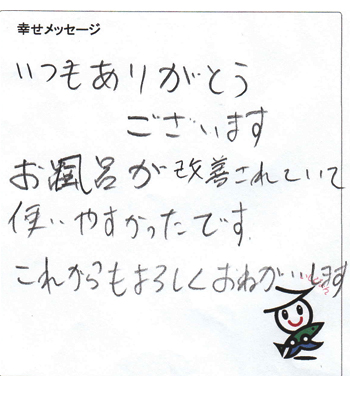 幸せメッセージ
いつもありがとう
ございます
お風呂が改善されていて
使いやすかったです
これからもよろしくおねがいします